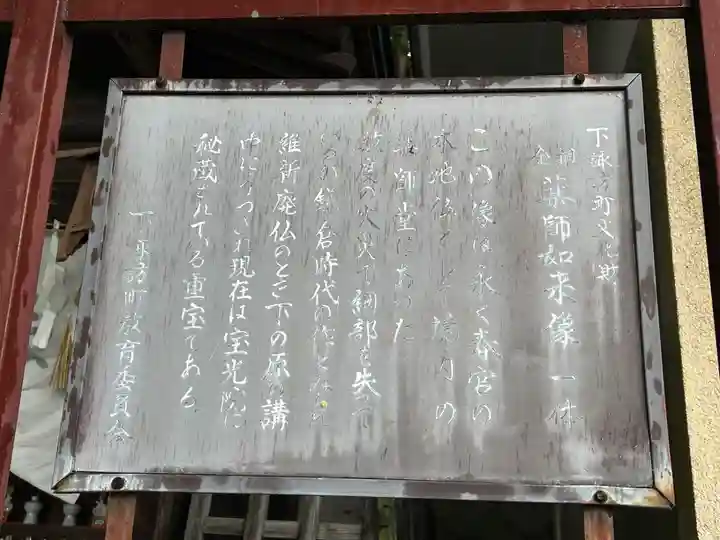 下諏訪町文化財
金銅 薬師如来像 一体
この像は永く春宮の
本地仏として境内の
薬師堂にあった
数度の火災で細部を失って
いるが鎌倉時代の作とみられ
維新廃仏のとき下の原の講
中にうつされ現在は宝光院に
秘蔵されている重宝である
下諏訪町教育委員会